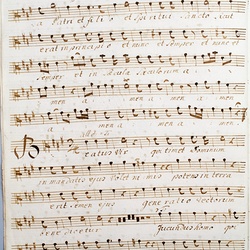 Patri et filio et Spiritui sancto, sicut
erat in principio et nunc et semper et nunc et
semper et in saecula saeculorum a
men a men a men a
men a men a men.
Beatus vir qui timet Dominum
in mandatis ejus volet nimis potens in terra
erit semen ejus generatio rectorum
benedicetur Jucundus homo qui